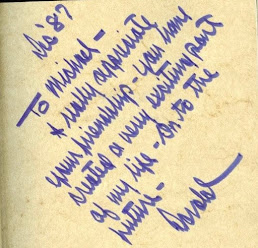 Dec '87
To Michael –
I really appreciate
your friendship – you have
created a very exciting part
of my life – On to the
future –